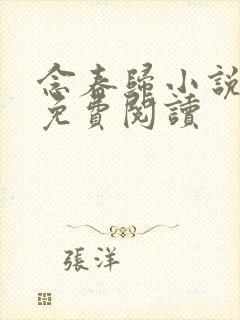 念春歸小說
免費閱讀
張洋